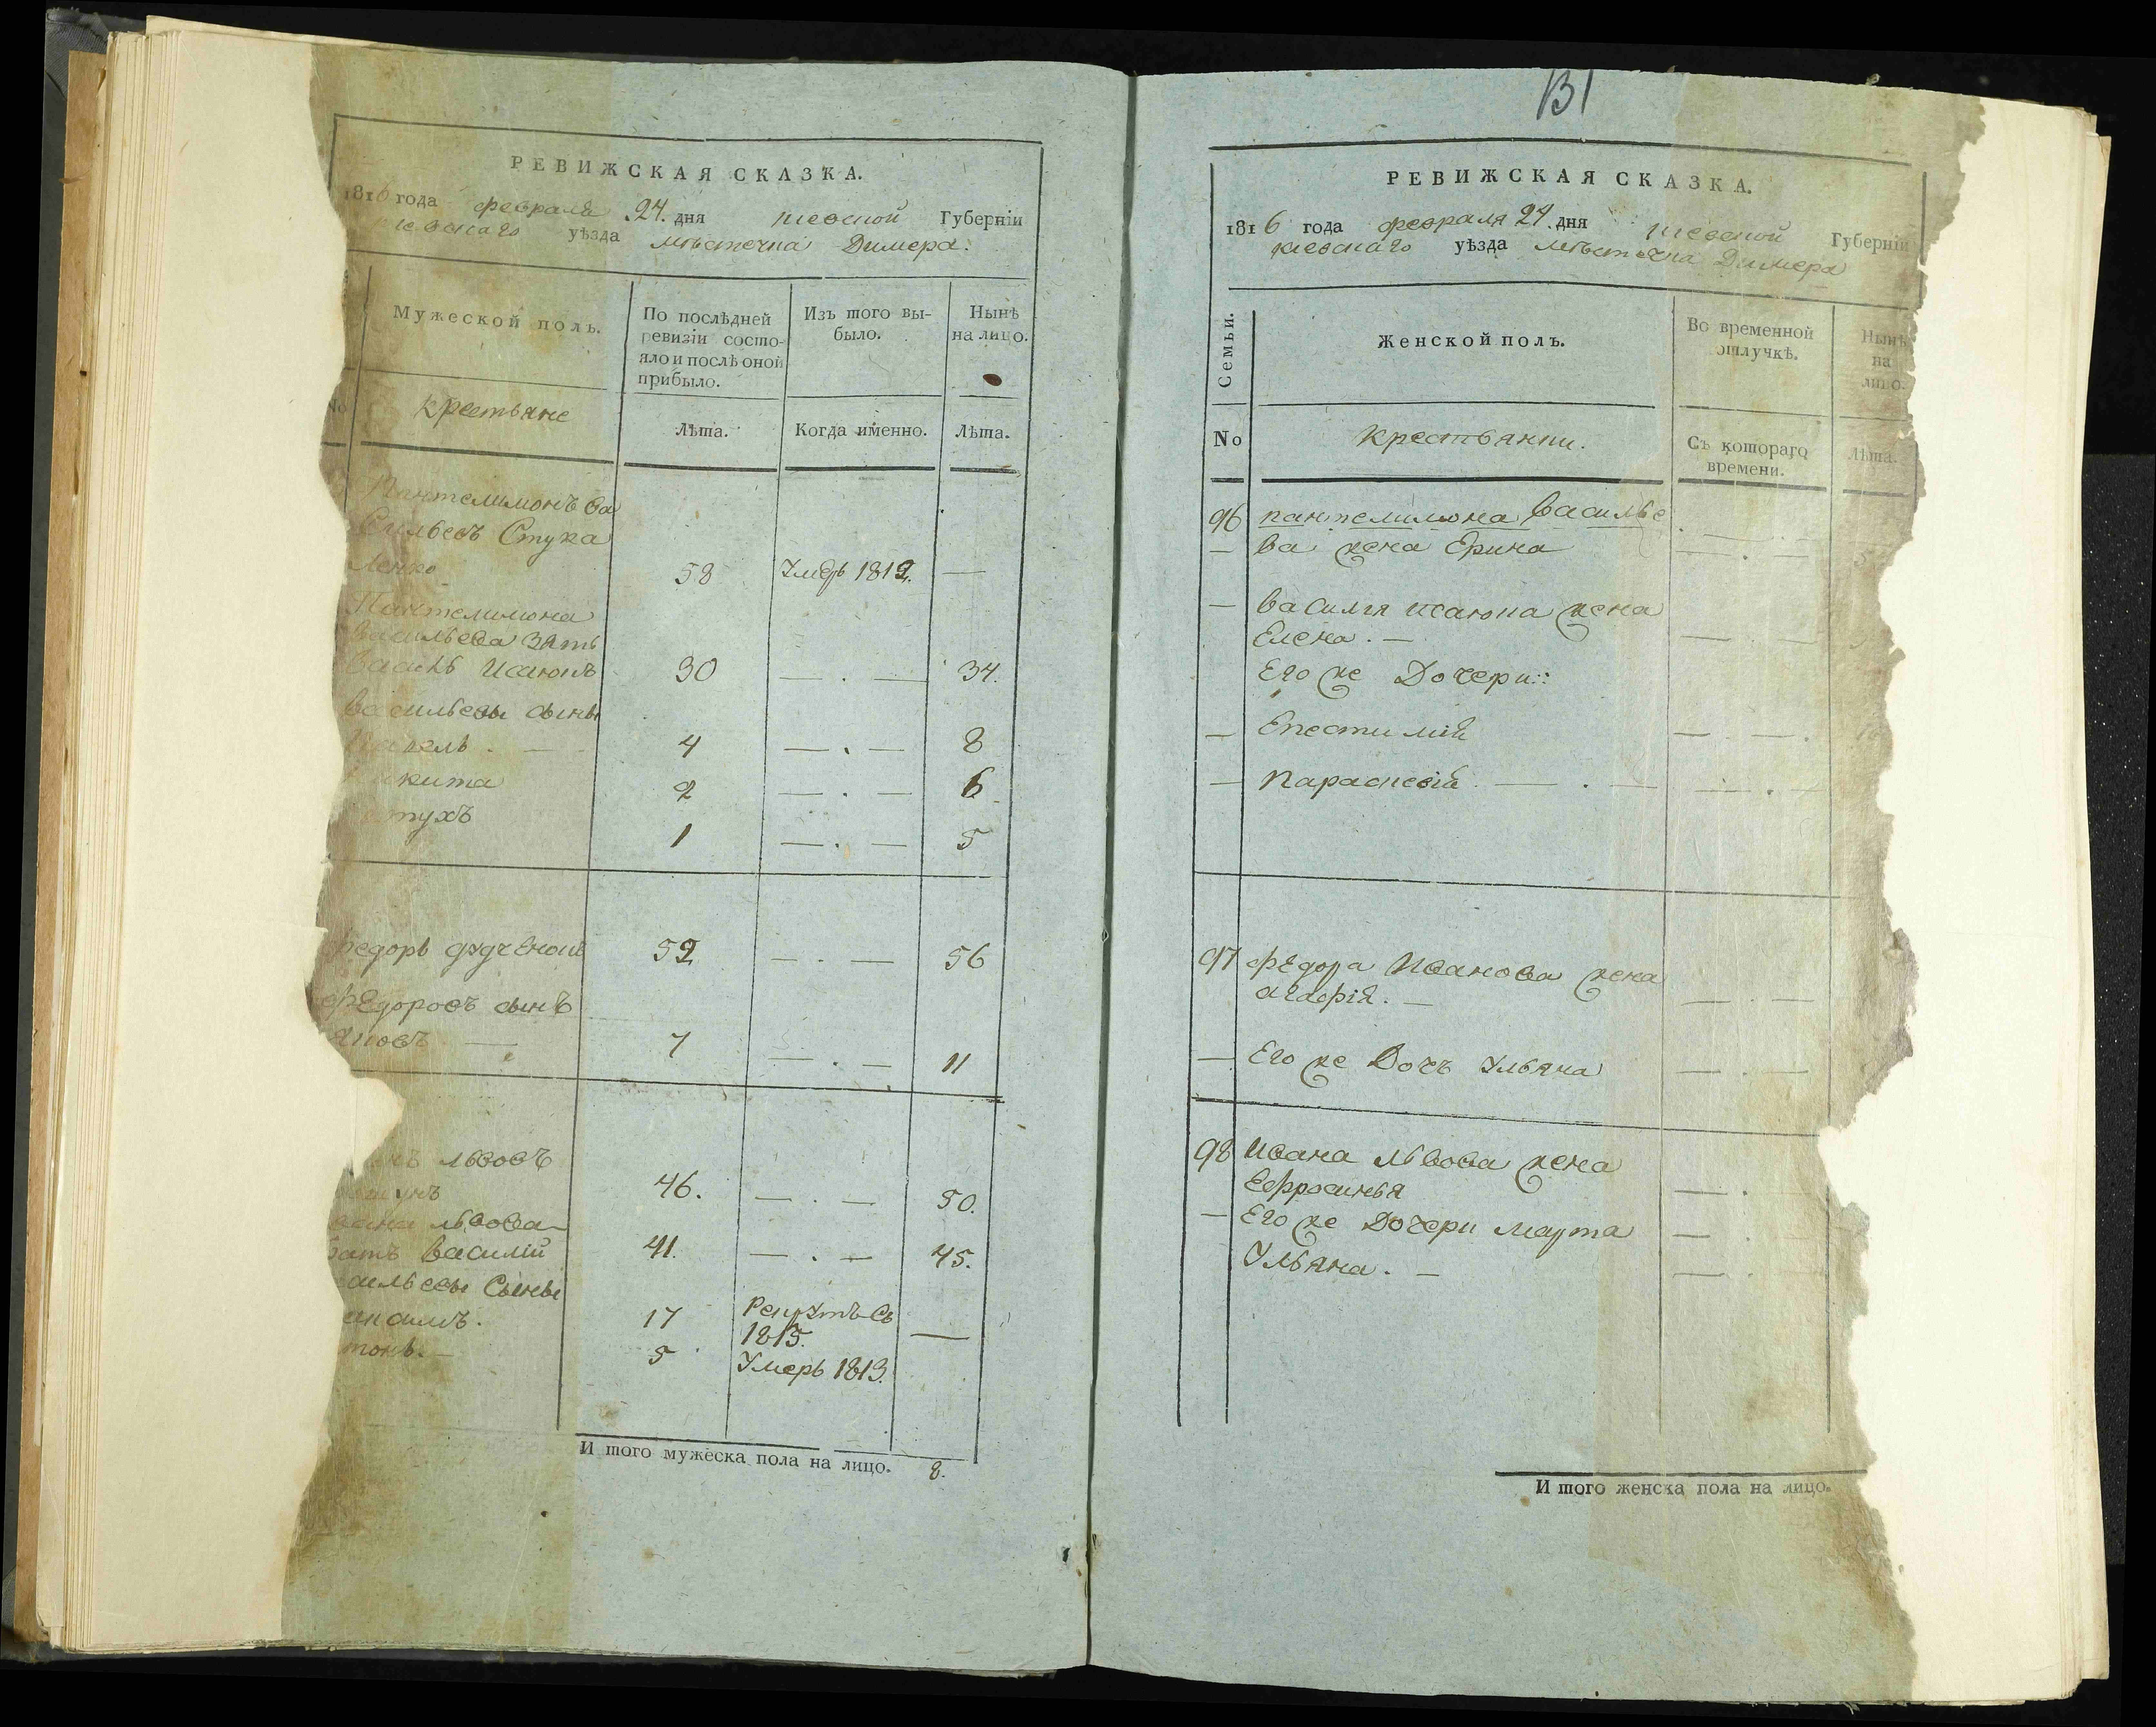 РЕВИЖСКАЯ СКАЗКА.
1816 года февраля 24. дня киевской Губерніи
киевскаго уѣзда мѣстечка Димера.
Мужеской полъ.
По послѣдней ревизіи состо-
яло и послѣ оной
прибыло.
Изъ того вы-
было.
Нынѣ
на лицо.
No
крестьяне
Лѣта.
Когда именно.
Лѣта.
Пантелимонъ Ва
сильевъ Стука
ленко 58 Умеръ 1812. —
Пантелимона
Васильева зять
Василь Исаюкъ 30 — . — 34.
Васильевы сыны
4 — . — 8
икита 2 — . — 6
тухъ 1 — . — 5
федоръ 52 — . — 56
федоровъ сынъ
яковъ — 7 — . — 11
львовъ
46. — . — 50.
львова
братъ Василій 41. — . — 45.
сильевы Сыны
17 Рекрутъ Съ
1815. —
5 Умеръ 1813.
И того мужеска пола на лицо. 8.
131
РЕВИЖСКАЯ СКАЗКА.
1816 года февраля 24. дня киевской Губерніи
киевскаго уѣзда мѣстечка Димера
Семьи.
Женской полъ.
Во временной
отлучкѣ.
Нынѣ
на
лицо.
No
крестьянки.
Съ котораго
времени.
Лѣта.
96 пантелимона Василье
— ва жена Ерина
— василия исаюка жена
Елена. —
Его же Дочери:
— Епестимій
— Параскевій
97 федора Иванова жена
агафія. —
— Его же Дочь Ульяна
98 Ивана львова жена
Ефросинья
— Его же Дочери марта
Ульяна. —
И того женска пола на лицо.